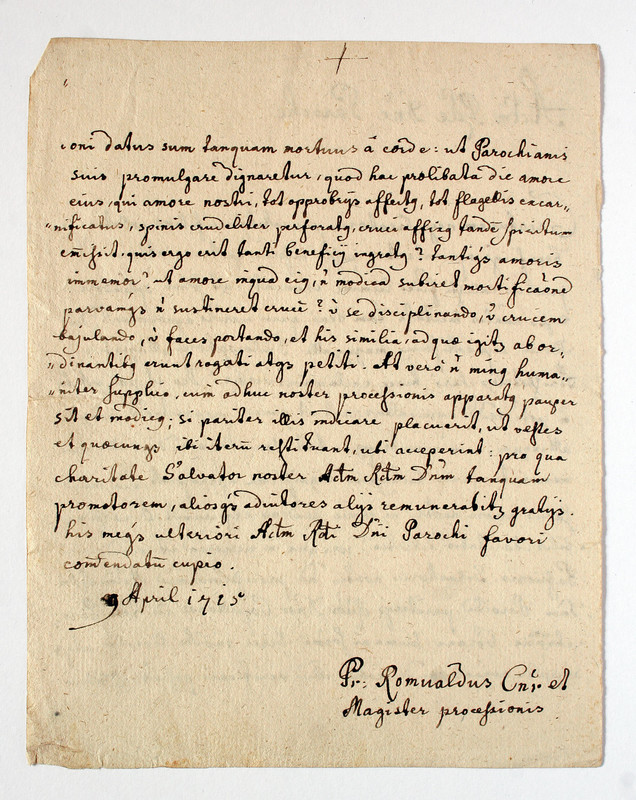 oni datus sum tanquam mortuus â corde: ut Parochianis
suis promulgare dignaretur, quòd hac prolibata die amore
eius, qui amore nostri, tot opprobrijs affectq, tot flagellis excar„
„nificatus, spinis crudeliter perforatq, cruci affixq tandē spiritum
emissit. quis ergo erit tanti beneficij ingratq? tantiqs amoris
immemor? ut amore inquā eiq, ñ modicā subiret mortificaōne
parvamqs ñ sustineret crucē? v̀ se disciplinando, v̀ crucem
bajulando, v̀ faces portando, et his similia, ad quæ igitr ab or„
„dinantibq erunt rogati atqs petiti. At verò ñ minq huma„
„niter supplico, cum adhuc noster processionis apparatq pauper
sit et modicq; si pariter illis indicare placuerit, ut vestes
et quæcunqs ibi iterū restituant, ubi acceperint: pro qua
charitate Salvator noster Adm Rdm Dnm tanquam
promotorem, aliosqs adiutores alijs remunerabitr gratijs.
his meqs ulteriori Adm Rdi Dni Parochi favori
comendatū cupio.
9 April 1715
Pr: Romualdus Cnr et
Magister processionis